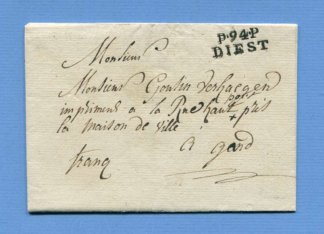 P.94.P
DIEST
Monsieur
Monsieur Goutier Verhaegen
imprimeur a la Rue haut port
+ près
la maison de ville
a gand
franq